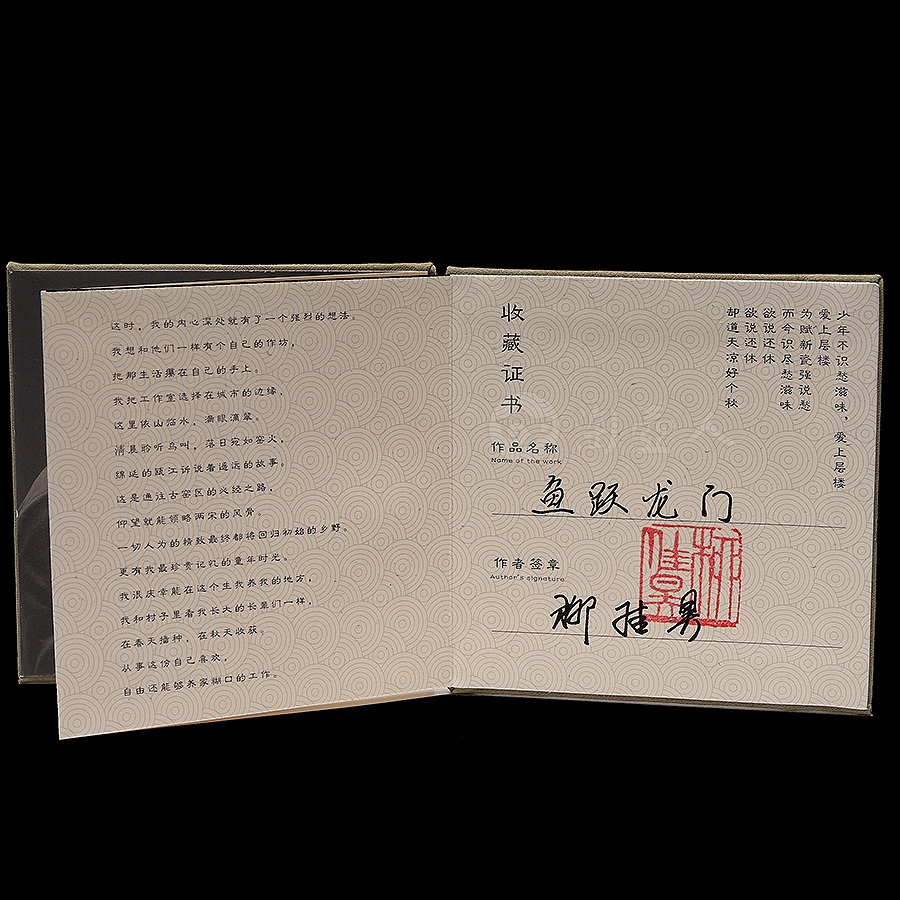 这时，我的内心深处就有了一个强烈的想法。
我想和他们一样有个自己的作坊，
把那生活攥在自己的手上。
我把工作室选择在城市的边缘，
这里依山临水，满眼滴翠。
清晨聆听鸟叫，落日宛如窑火，
绵延的瓯江诉说着遥远的故事。
这是通往古窑区的必经之路，
仰望就能领略两宋的风骨。
一切人为的精致最终都将回归初始的乡野。
更有我最珍贵记忆的童年时光。
我很庆幸能在这个生我养我的地方，
我和村子里看我长大的长辈们一样，
在春天播种，在秋天收获。
从事这份自己喜欢，
自由还能够养家糊口的工作。
少年不识愁滋味，爱上层楼
爱上层楼
为赋新瓷强说愁
而今识尽愁滋味
欲说还休
欲说还休
却道天凉好个秋
收藏证书
作品名称
Name of the work
鱼跃龙门
作者签章
Author's signature
柳